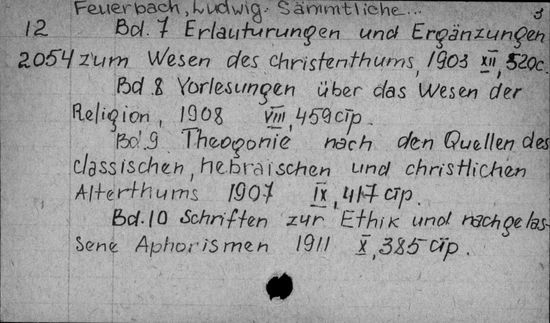 Feuerbach, Ludwig. Sämmtliche... 3
12 Bd. 7 Erlauturungen und Ergänzungen
2054 zum Wesen des christenthums, 1903 XII, 520c.
Bd. 8 Vorlesungen über das Wesen der
Religion, 1908 VIII, 459 cтр.
Bd. 9 Theogonie nach den Quellen des
classischen, hebraischen und christlichen
Alterthums 1907 IX, 417 cтр.
Bd. 10 Schriften zur Ethik und nachgelas-
sene Aphorismen 1911 X, 385 cтр.